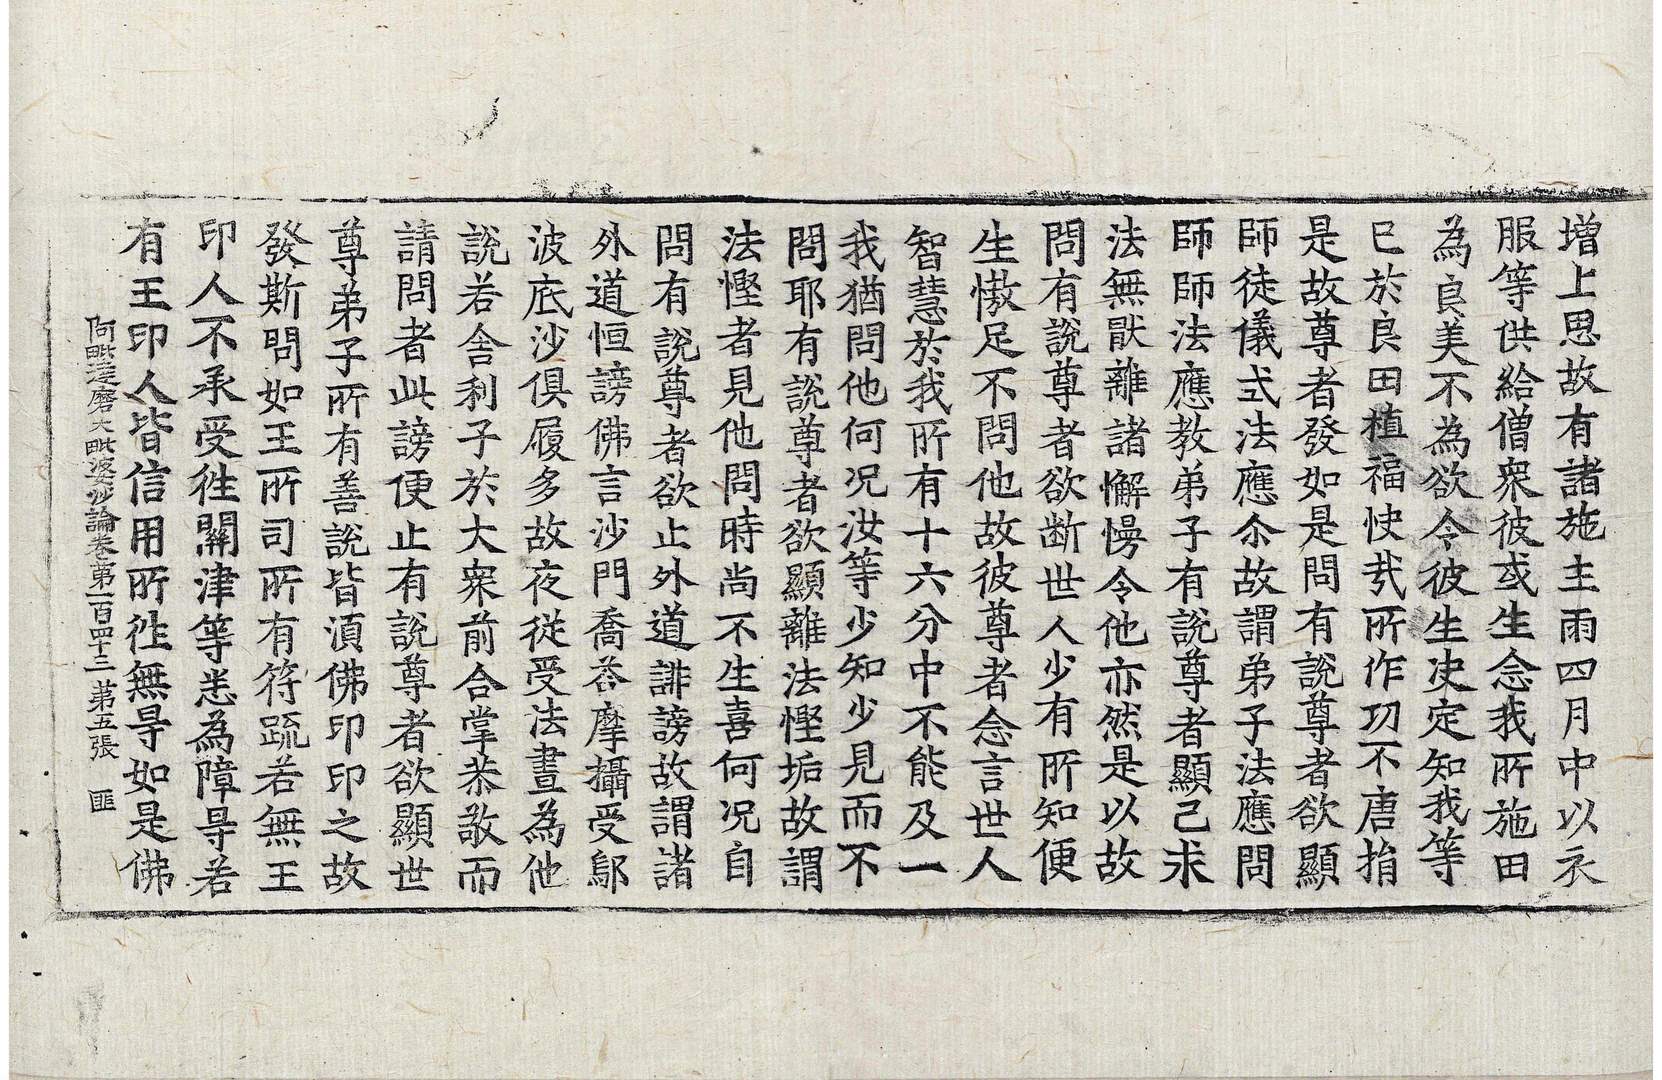 增上恩故有諸施主雨四月中以衣
服等供給僧衆彼或生念我所施田
為良美不為欲令彼生决定知我等
已於良田植福快㦲所作功不唐捐
是故尊者發如是問有說尊者欲顯
師徒儀式法應尒故謂弟子法應問
師師法應教弟子有說尊者顯己求
法無猒離諸懈慢令他亦然是以故
問有說尊者欲断世人少有所知便
生憿足不問他故彼尊者念言世人
智慧於我所有十六分中不能及一
我猶問他何况汝等少知少見而不
問耶有說尊者欲顯離法慳垢故謂
法慳者見他問時尚不生喜何况自
問有說尊者欲止外道誹謗故謂諸
外道恒謗佛言沙門喬荅摩攝受鄔
波底沙俱履多故夜從受法晝為他
說若舍利子於大衆前合掌恭敬而
請問者此謗便止有說尊者欲顯世
尊弟子所有善說皆湏佛印印之故
發斯問如王所司所有符疏若無王
印人不承受徃關津等悉為障㝵若
有王印人皆信用所徃無㝵如是佛
阿毗達磨大毗婆沙論卷第一百四十三 第五張 匪